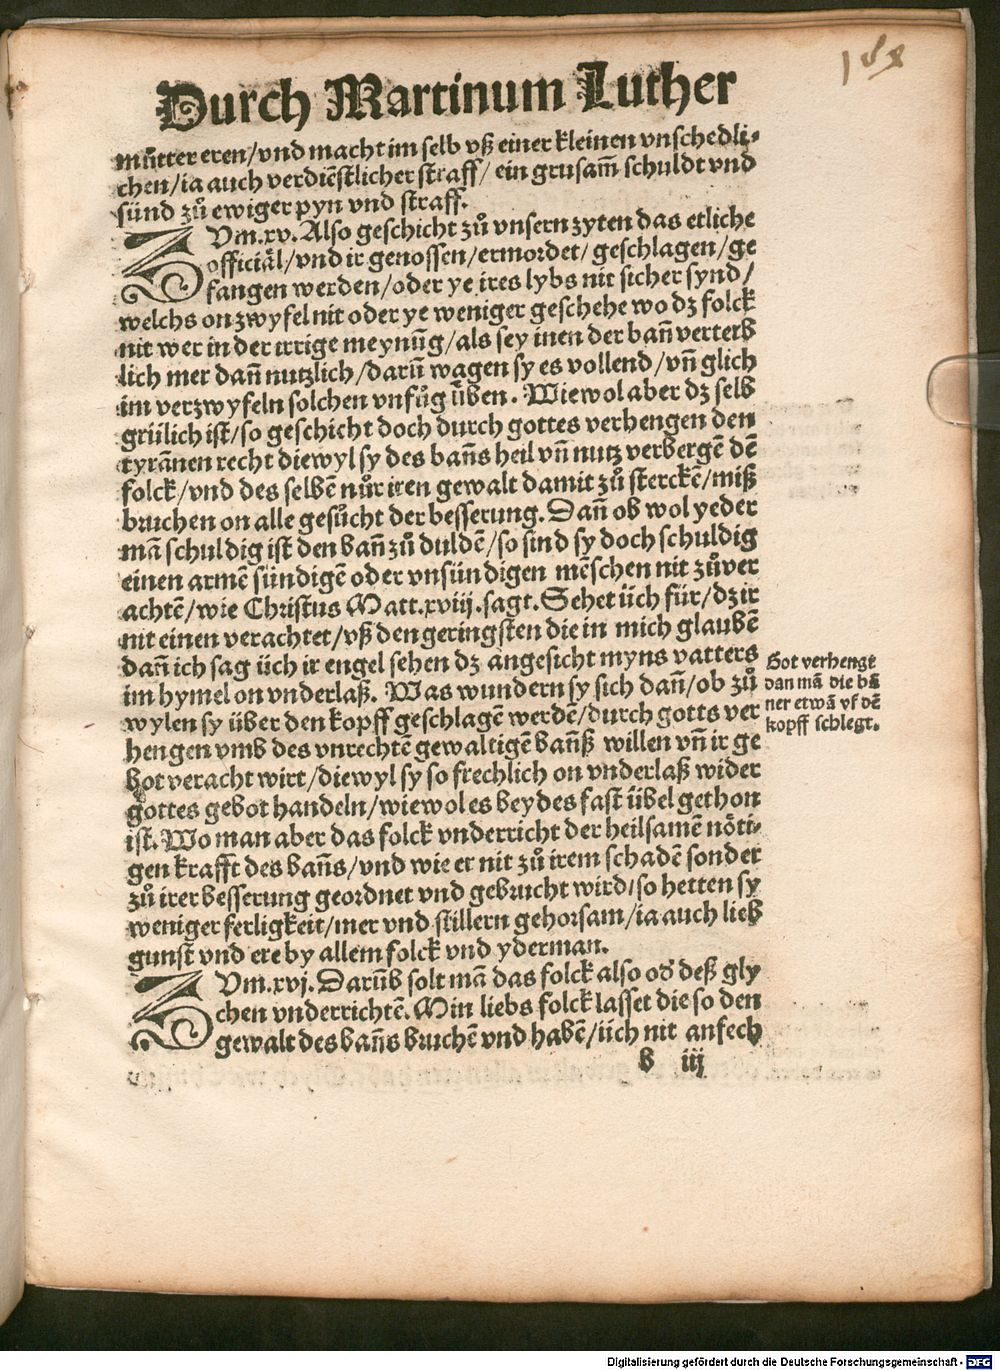 Durch Martinum Luther
můtter eren/vnd macht im selb vß einer kleinen vnschedli⸗
chen/ia auch verdiēstlicher straff/ ein grusam̄ schuldt vnd
sünd zů ewiger pyn vnd straff.
ZVm.xv. Also geschicht zů vnsern zyten das etliche
official/vnd ir genossen/ermordet/geschlagen/ge
fangen werden/oder ye ires lybs nit sicher synd/
welchs on zwyfel nit oder ye weniger geschehe wo dz folck
nit wer in der irrige meynūg/als sey inen der bañ verterb
lich mer dañ nutzlich/darū wagen sy es vollend/vñ glich
im verzwyfeln solchen vnfůg üben. Wiewol aber dz selb
grülich ist/so geschicht doch durch gottes verhengen den
tyrānen recht diewyl sy des bañs heil vñ nutz verbergē dē
folck/vnd des selbē nůr iren gewalt damit zů sterckē/miß
bruchen on alle gesůcht der besserung. Dañ ob wol yeder
mā schuldig ist den bañ zů duldē/so sind sy doch schuldig
einen armē sündigē oder vnsündigen mēschen nit zů ver
achtē/wie Christus Matt.xviij.sagt. Sehet üch für/dz ir
nit einen verachtet/vß den geringsten die in mich glaubē
dañ ich sag üch ir engel sehen dz angesicht myns vatters
im hymel on vnderlaß. Was wundern sy sich dañ/ob zů
wylen sy über den kopff geschlagē werdē/durch gotts ver
hengen vmb des vnrechtē gewaltigē bañß willen vñ ir ge
bot veracht wirt/diewyl sy so frechlich on vnderlaß wider
gottes gebot handeln/wiewol es beydes fast übel gethon
ist. Wo man aber das folck vnderricht der heilsamē nöti⸗
gen krafft des bañs/vnd wie er nit zů irem schadē sonder
zů irer besserung geordnet vnd gebrucht wird/so hetten sy
weniger ferligkeit/mer vnd stillern gehorsam/ia auch lieb
gunst vnd ere by allem folck vnd yderman.
Got verhengt
dan mā die bā
ner etwā vf dē
kopff schlegt.
ZVm.xvj. Darūb solt mā das folck also od deß gly
chen vnderrichtē. Min liebs folck lasset die so den
gewalt des bañs bruchē vnd habē/üch nit anfech
b iij
Digitalisierung gefördert durch die Deutsche Forschungsgemeinschaft - DFG